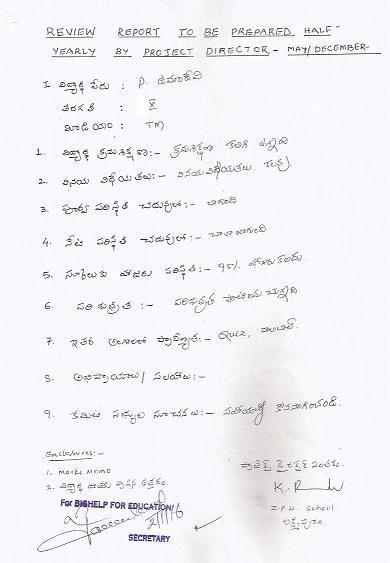 REVIEW REPORT TO BE PREPARED HALF-
YEARLY BY PROJECT DIRECTOR - MAY/DECEMBER-
I. విద్యార్థి పేరు : P. ఉమాదేవి
తరగతి : X
మీడియం : TM
1. విద్యార్థి క్రమశిక్షణ:- క్రమశిక్షణ కలిగి ఉన్నది
2. వినయ విధేయతలు:- వినయవిధేయతలు కలవు.
3. పూర్వ పరిస్థితి చదువులో:- బాగుంది
4. నేటి పరిస్థితి చదువులో:- చాలా బాగుంది
5. స్కూలుకు హాజరు పరిస్థితి:- 95%
6. పరిశుభ్రత :- పరిశుభ్రత
7. ఇతర అంశాలలో ప్రావీణ్యత:- Quiz,
8. అభిప్రాయాలు/ సలహాలు:-
9. కమిటి సభ్యుల సూచనలు:- సహాయాన్ని కొనసాగించండి.
Enclosures:-
1. Marks Memo
2. విద్యార్థి వ్రాసిన ఉత్తరం.
ప్రాజెక్ట్ డైరెక్టర్ సంతకం.
Z.P.H. School
లక్ష్మీపురం.
For BIGHELP FOR EDUCATION
2/1/16
SECRETARY